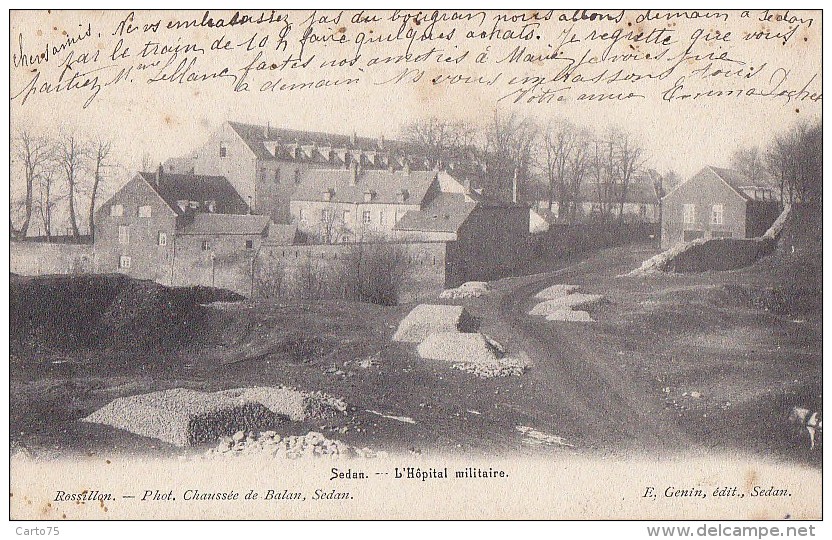 chers amis, Ne vous embarrassiez pas du bougran nous allons demain à Sedan
par le train de 10 h faire quelques achats. Je regrette que vous
partiez Mme Leblanc faites nos amitiés à Marie
à demain Ns vous embrassons tous
Votre amie Emma
Sedan. — L'Hôpital militaire.
Rossillon. — Phot. Chaussée de Balan, Sedan.
E. Genin, édit., Sedan.
Carto75
www.delcampe.net